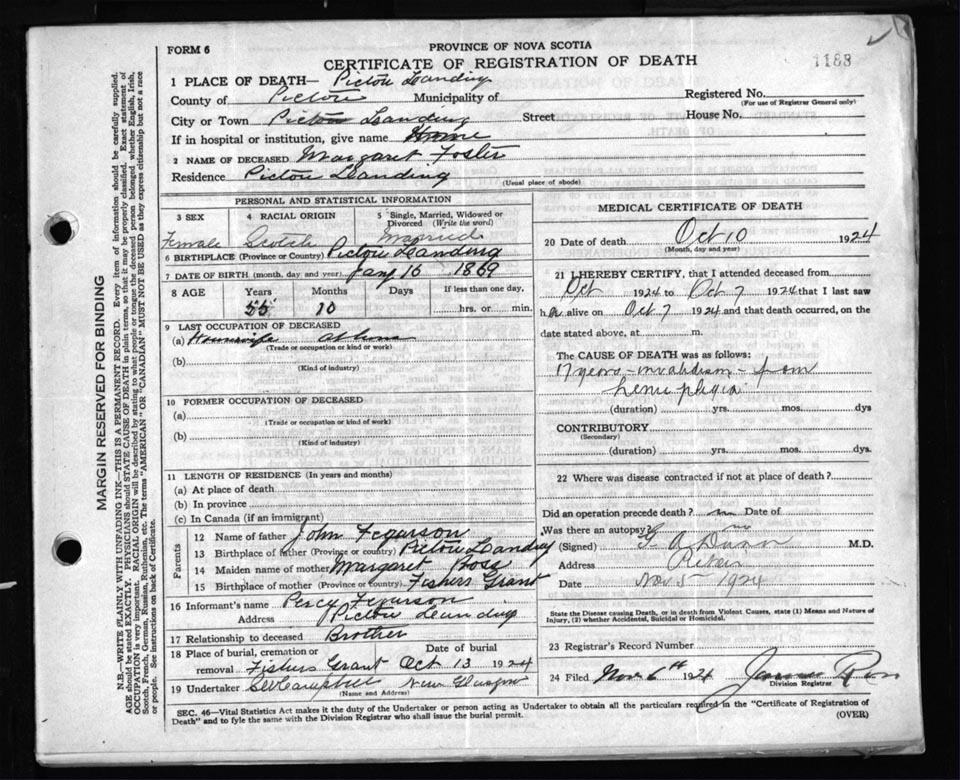 1183
FORM 6
PROVINCE OF NOVA SCOTIA
CERTIFICATE OF REGISTRATION OF DEATH
1 PLACE OF DEATH— Pictou Landing
County of Pictou Municipality of
Registered No.
(For use of Registrar General only)
City or Town Pictou Landing Street House No.
If in hospital or institution, give name Home
2 NAME OF DECEASED Margaret Foster
Residence Pictou Landing
(Usual place of abode)
PERSONAL AND STATISTICAL INFORMATION
3 SEX 4 RACIAL ORIGIN 5 Single, Married, Widowed or Divorced (Write the word)
Female Scotch Married
6 BIRTHPLACE (Province or Country) Pictou Landing
7 DATE OF BIRTH (month, day and year) Jany 16 1869
8 AGE Years Months Days If less than one day,
55 10 hrs. or min.
9 LAST OCCUPATION OF DECEASED
(a) Housewife at home
(Trade or occupation or kind or work)
(b)
(Kind of industry)
10 FORMER OCCUPATION OF DECEASED
(a)
(Trade or occupation or kind of work)
(b)
(Kind of industry)
11 LENGTH OF RESIDENCE (In years and months)
(a) At place of death
(b) In province
(c) In Canada (if an immigrant)
Parents
12 Name of father John Fegurson
13 Birthplace of father (Province or country) Pictou Landing
14 Maiden name of mother Margaret Ross
15 Birthplace of mother (Province or country) Fishers Grant
16 Informant's name Percy Fegurson
Address Pictou Landing
17 Relationship to deceased Brother
18 Place of burial, cremation or removal Fishers Grant
Date of burial Oct 13 1924
19 Undertaker Campbell New Glasgow
(Name and Address)
MEDICAL CERTIFICATE OF DEATH
20 Date of death Oct 10 1924
(Month, day and year)
21 I HEREBY CERTIFY, that I attended deceased from
Oct 1924 to Oct 7 1924 that I last saw
h er alive on Oct 7 1924 and that death occurred, on the
date stated above, at m.
The CAUSE OF DEATH was as follows:
17 years - invalidism - from
hemiplegia
(duration) yrs. mos. dys
CONTRIBUTORY
(Secondary)
(duration) yrs. mos. dys.
22 Where was disease contracted if not at place of death?
Did an operation precede death? no Date of
Was there an autopsy? no
(Signed) Dunn M.D.
Address Pictou
Date Nov 5 1924
State the Disease causing Death, or in death from Violent Causes, state (1) Means and Nature of
Injury, (2) whether Accidental, Suicidal or Homicidal.
23 Registrar's Record Number
24 Filed Nov 6th 1924 James Ross
Division Registrar
SEC. 46—Vital Statistics Act makes it the duty of the Undertaker or person acting as Undertaker to obtain all the particulars required in the "Certificate of Registration of
Death" and to fyle the same with the Division Registrar who shall issue the burial permit.
(OVER)
MARGIN RESERVED FOR BINDING
N.B.—WRITE PLAINLY WITH UNFADING INK—THIS IS A PERMANENT RECORD. Every item of information should be carefully supplied.
AGE should be stated EXACTLY. PHYSICIANS should STATE CAUSE OF DEATH in plain terms, so that it may be properly classified. Exact statement of
OCCUPATION is very important. RACIAL ORIGIN will be described by stating to what people or tongue the deceased person belonged whether English, Irish,
Scotch, French, German, Russian, Ruthenian, etc. The terms "AMERICAN" OR "CANADIAN" MUST NOT BE USED as they express citizenship but not a race
or people. See instructions on back of Certificate.